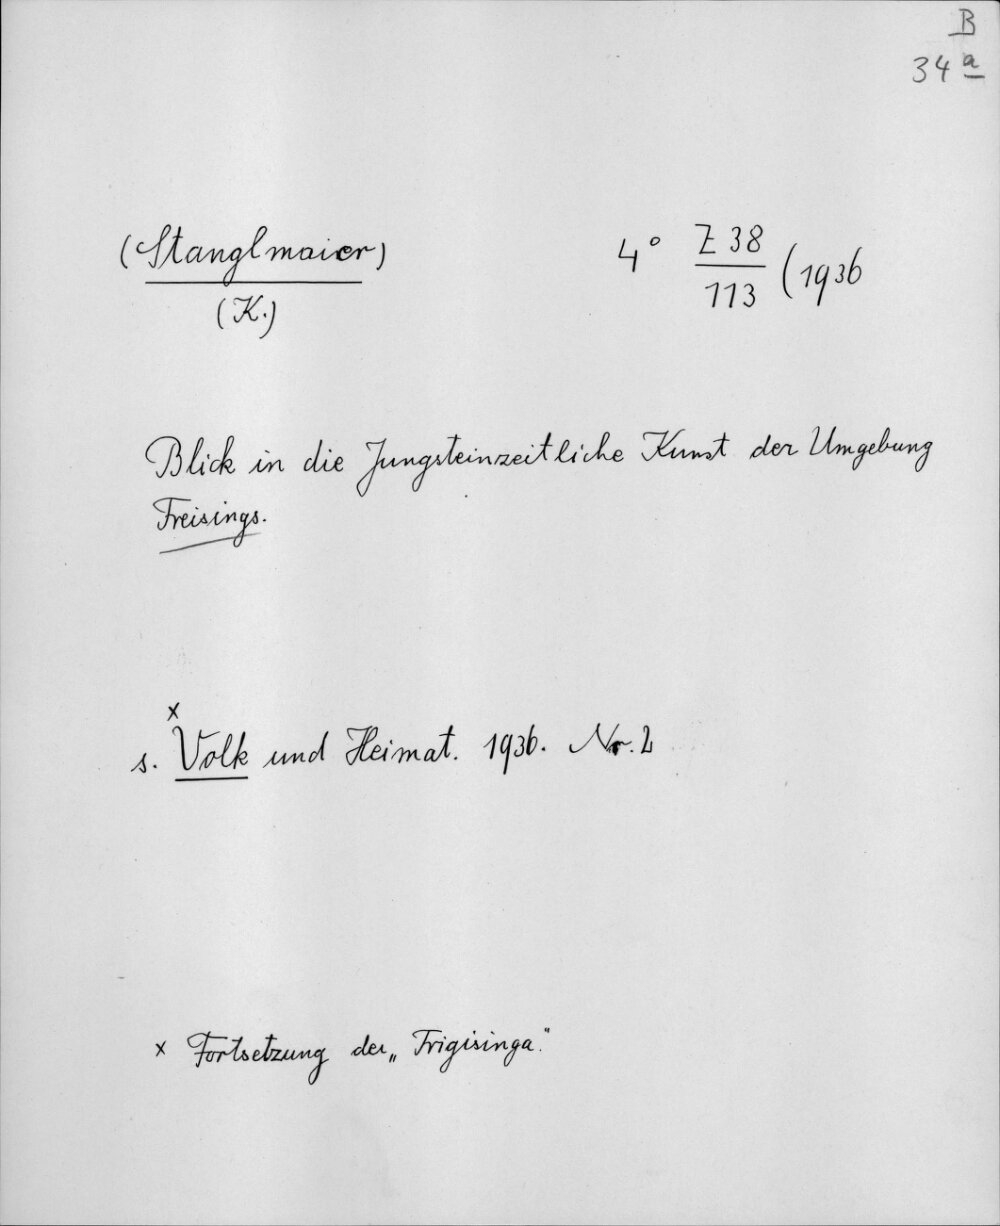 B
34 a
(Stanglmaier)
(K.)
4° Z 38
113 (1936
Blick in die Jungsteinzeitliche Kunst der Umgebung
Freisings.
x
s. Volk und Heimat. 1936. Nr. 2
x Fortsetzung der „Frigisinga."